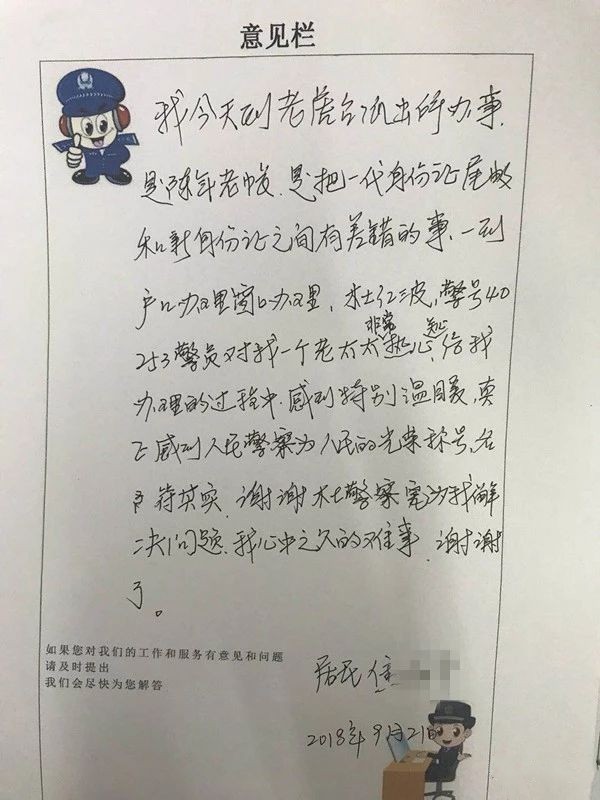 意见栏
我今天到老唐台派出所办事,
是陈年老帐,是把一代身份证尾数
和新身份证之间有差错的事,一到
户口办理窗口办理,杜红波,警号40
非常
253警员对我一个老太太热心,给我
办理的过程中,感到特别温暖,真
正感到人民警察为人民的光荣称号,名
符其实,谢谢杜警察完为我解
决问题,我心中之久的难事,谢谢
了。
如果您对我们的工作和服务有意见和问题
请及时提出
我们会尽快为您解答
居民
2018年9月21日